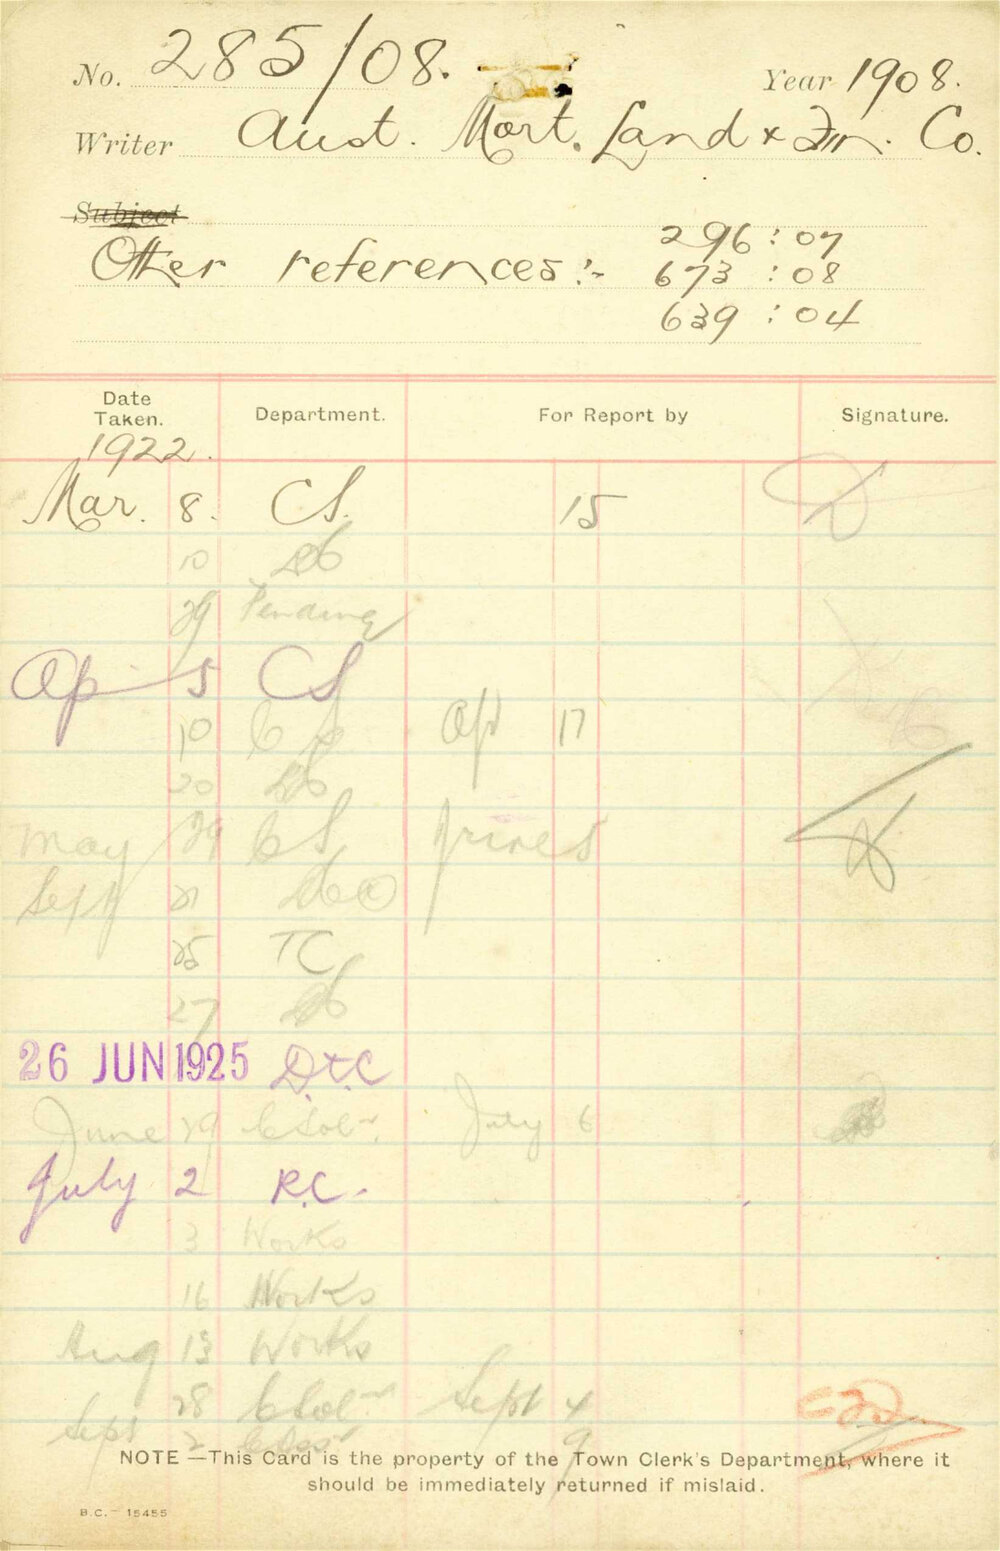 No. 285/08. Year 1908.
Writer Aust. Mort. Land & Fin. Co.
Subject
Other references:- 296 : 07
673 : 08
639 : 04
Date Taken. Department. For Report by Signature.
1922.
Mar. 8. CS. 15
10
29 Pending
Ap 5 CS
10 CS Apl 17
20
May 29 CS June 5
Sept 21
25 TC
27
26 JUN 1925 D.T.C
June 29 CSolr. July 6
July 2 R.C.
3 Works
16 Works
Aug 13 Works
28 CSolr Sept 4
Sept 2 9
NOTE —This Card is the property of the Town Clerk's Department, where it
should be immediately returned if mislaid.
B.C.— 15455